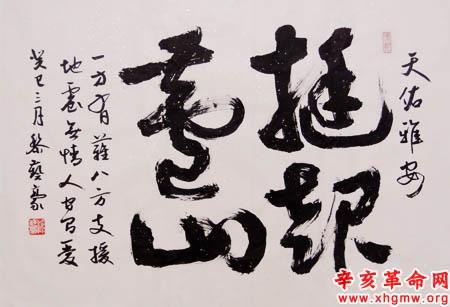 天佑雅安
挺起
蘆山
一方有難八方支援
地震無情人有愛
癸巳三月
辛亥革命网
www.xhgmw.org